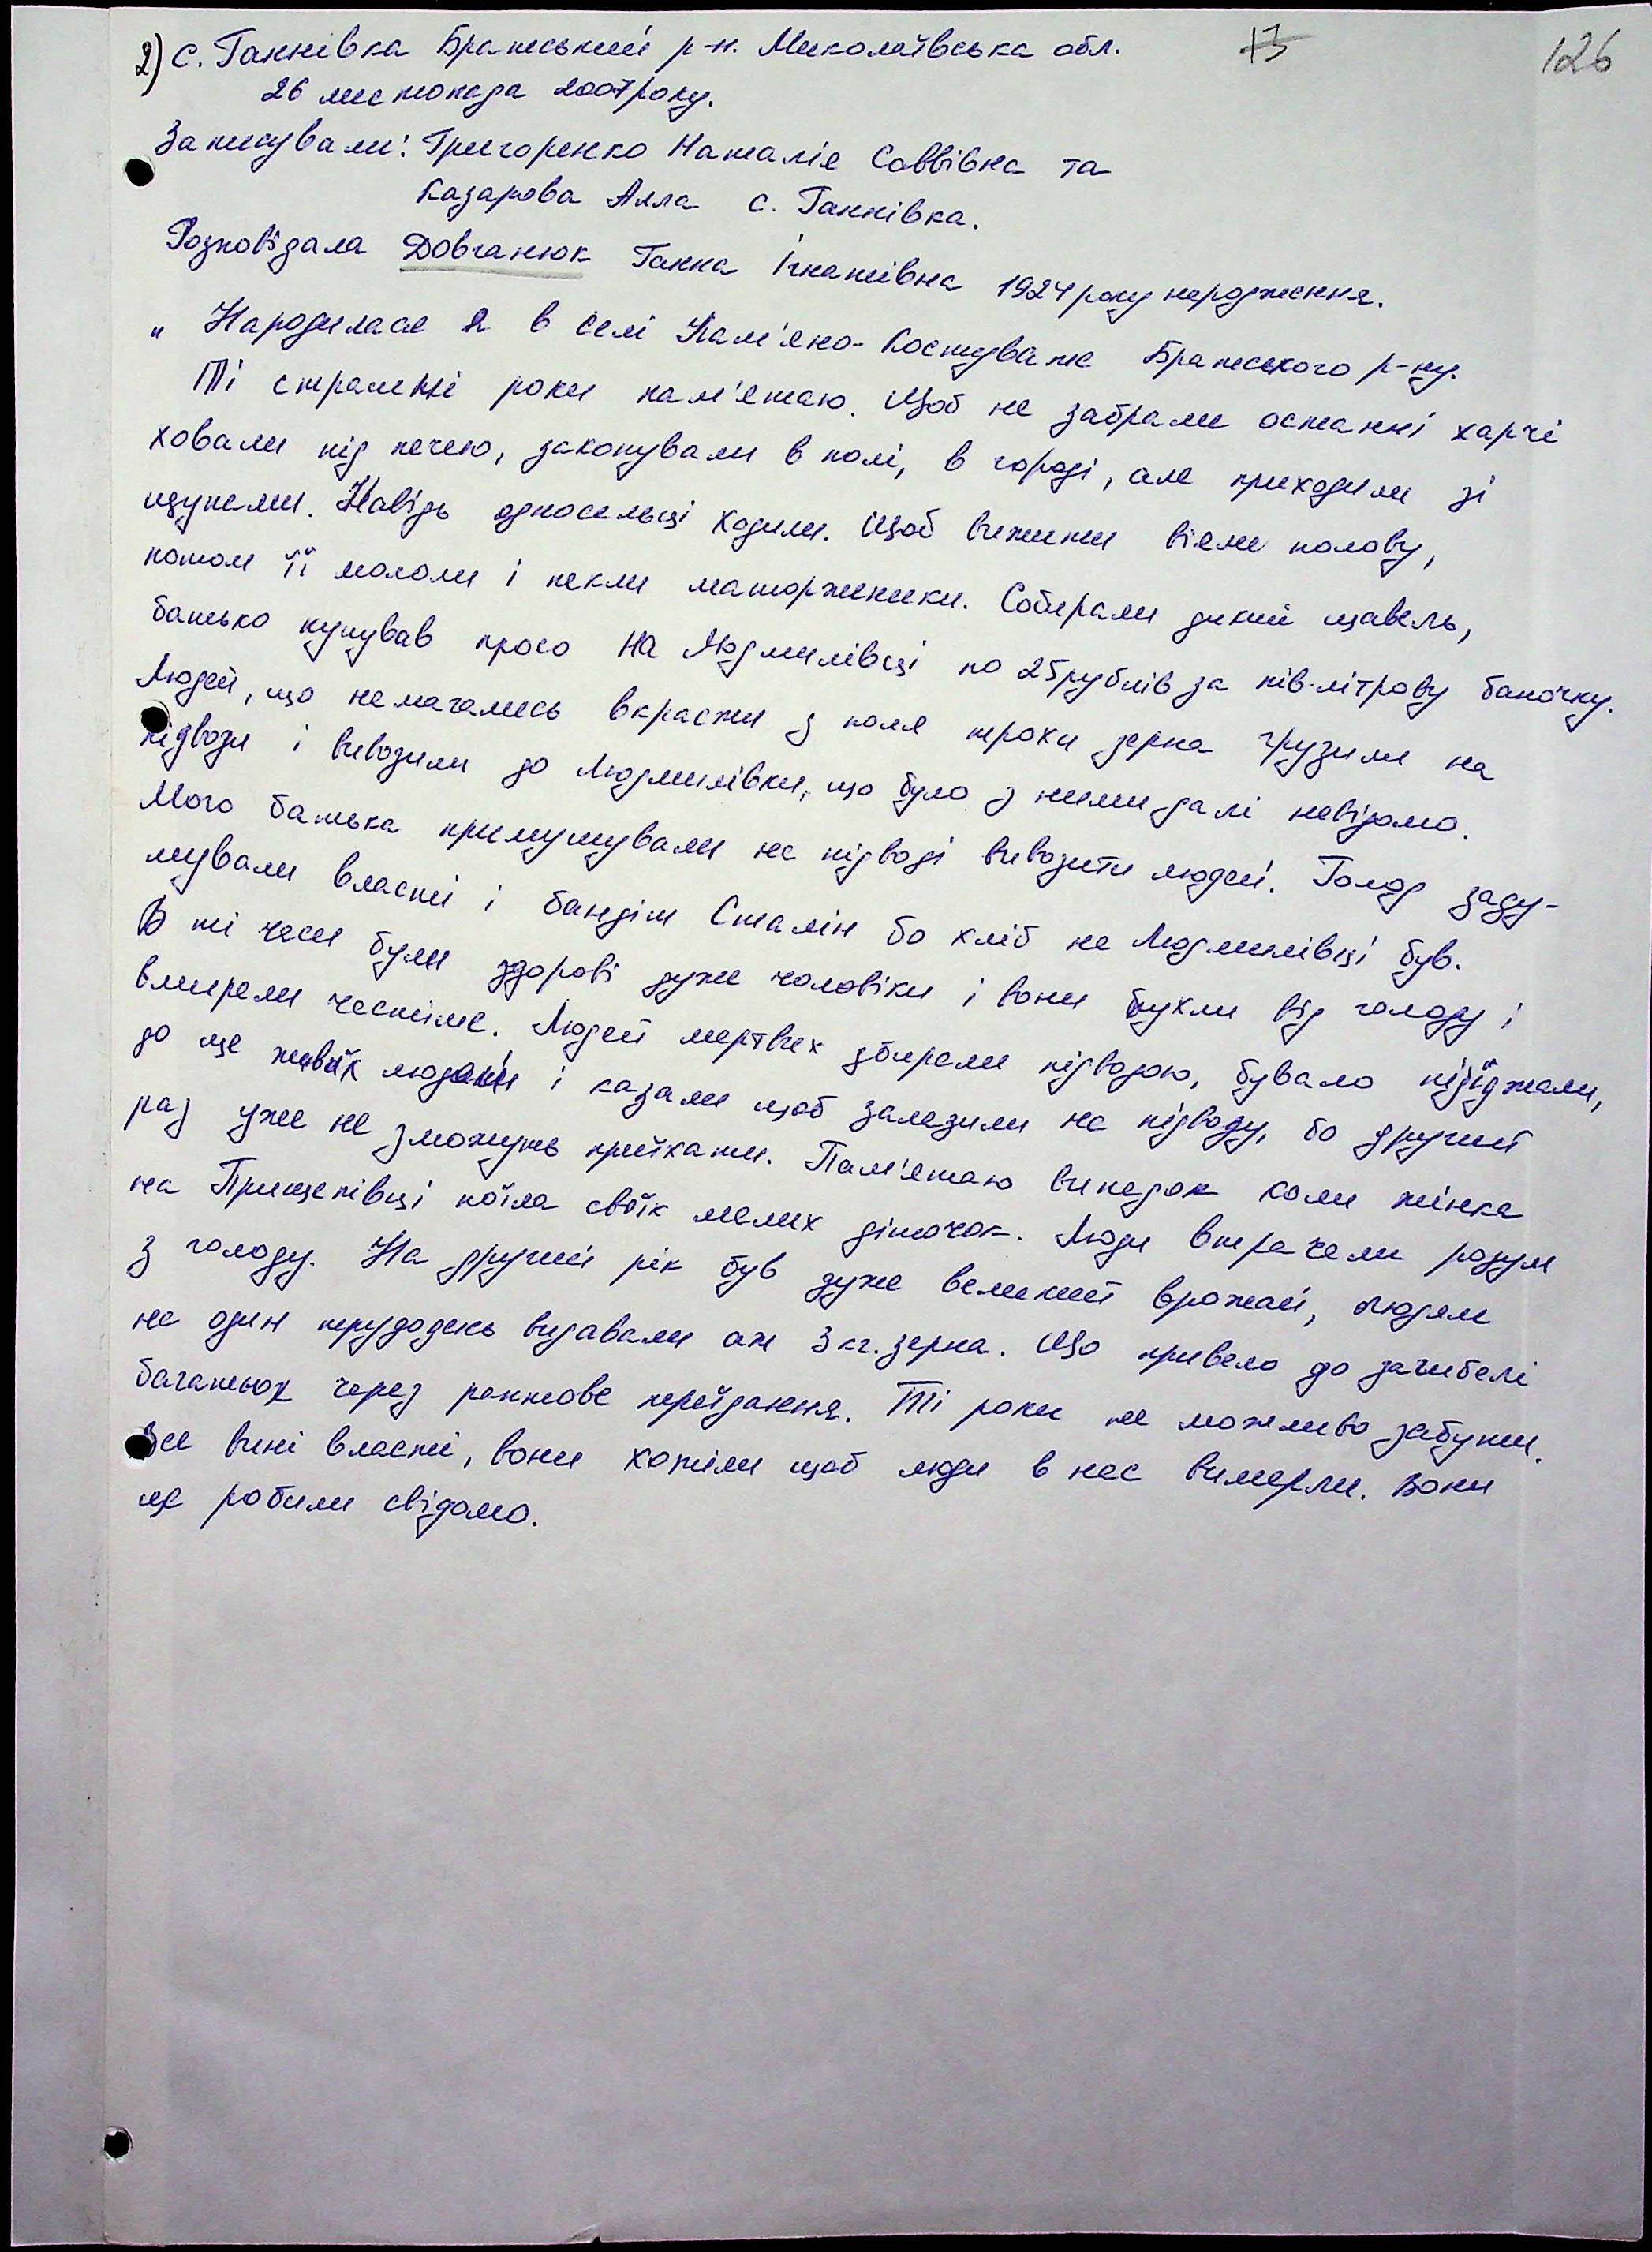 13 126
2) с. Ганнівка Братський р-н. Миколаївська обл.
26 листопада 2007 року.
Записували: Григоренко Наталія Саввівна та
Казарова Алла с. Ганнівка.
Розповідала Довганюк Ганна Ігнатівна 1924 року народження.
„ Народилася я в селі Кам'яно-Костувате Братського р-ну.
Ті страшні роки пам'ятаю. Щоб не забрали останні харчі
ховали під печею, закопували в полі, в городі, але приходили зі
щупами. Навідь односельці ходили. Щоб вижити віяли полову,
потом її мололи і пекли маторженики. Собирали дикий щавель,
батько купував просо на Людмилівці по 25 рублів за пів-літрову баночку.
Людей, що немагались вкрасти з поля трохи зерна грузили на
підводи і вивозили до Людмилівки, що було з ними далі невідомо.
Мого батька примушували на підводі вивозити людей. Голод заду-
мували власті і бандіт Сталін бо хліб на Людмилівці був.
В ті часи були здорові дужі чоловіки і вони пухли від голоду і
вмирали частіше. Людей мертвих збирали підводою, бувало підїджали,
до ще живих людей і казали щоб залазили на підводу, бо другий
раз уже не зможуть приїхати. Пам'ятаю випадок коли жінка
на Прищепівці поїла своїх малих діточок. Люди втрачали розум
з голоду. На другий рік був дуже великий врожай, людям
на один трудодень видавали аж 3 кг. зерна. Що привело до загибелі
багатьох через раптове переїдання. Ті роки не можливо забути.
Все вині власті, вони хотіли щоб люди в нас вимерли. Вони
це робили свідомо.